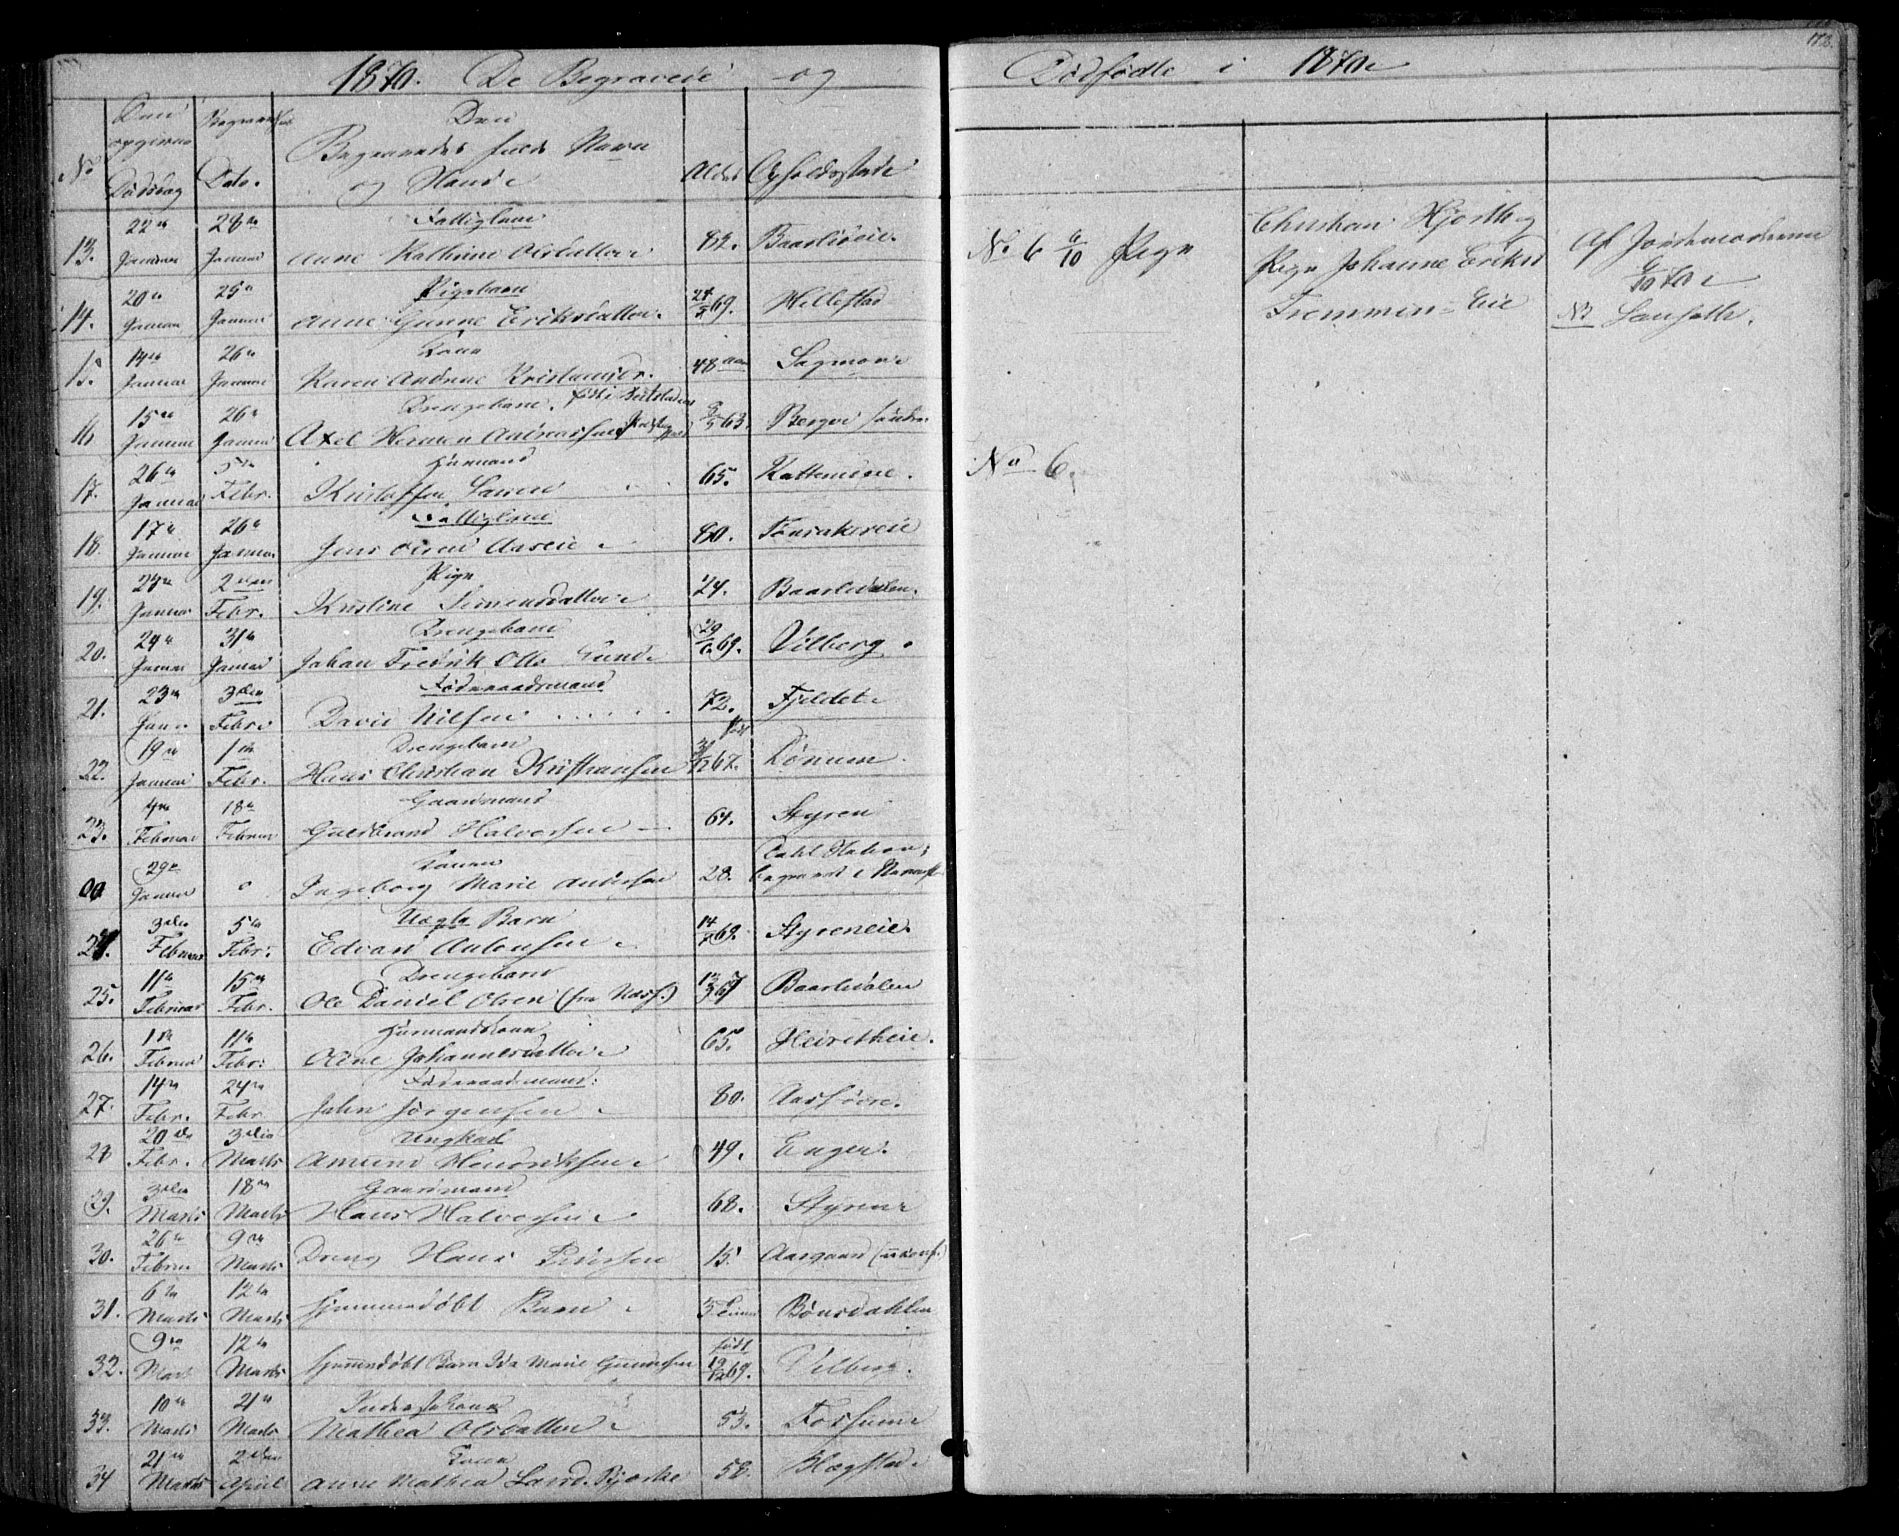 1870. De Begravede og
Den opgivne Dødsdag
Begravelses Dato.
Den
Begravedes fulde Navn
og Stand
No
Alder
Opholdsstæd
13. 22de Januar 28de Januar Fattiglem Anne Kathrine Olsdatter 82. Baarlieie.
14. 20de Januar 25de Januar Pigebarn Anne Gunne Eriksdatter. 69. Hillestad
15. 14de Januar 26de Januar Kone Karen Andrine Kristiansdr. 48 aar Sagmoen
16. 15de Januar 26de Januar Drengebarn. Axel Herman Andreassen 63. Berger søndre
17. 26de Januar 5te Febr. Huusmand Kristoffer Larsen 65. Kattemoeie.
18. 17de Januar 26de Januar Fattiglem Jens Olsen Aaseie 80. Tønsakereie
19. 27de Januar 2den Febr. Pige Kristine Simensdatter 24. Baarlidalen.
20. 24de Januar 31te Januar Drengebarn Johan Fredrik Otto Lund 29/6 69. Vilberg
21. 23de Janr 3die Febr Føderaadsmand David Nilsen 72. Fjeldet
22. 19de Januar 1ste Febr. Drengebarn Hans Christian Kristiansen født 67. Dønnum
23. 4de Februar 18de Februar Gaardmand Guldbrand Halvorsen 64. Styren
00 29de Januar 0 Konen Ingeborg Marie Andersen 28. Dahl Station; begravet i
24. 3die Februar 5te Febr: Uægte Barn Edvart Antonsen 69. Styreneie.
25. 11te Februar 15de Febr. Drengebarn Ole Daniel Olsen (fra Næss.) 67 Baarlidalen
26. 1ste Februar 11te Febr: Huusmandskone Oline Johannesdatter 65. Heiretheie.
27. 14de Febr. 24de Febr. Føderaadsmand: John Jørgensen 80. Aas søre.
28 20de Febr. 3die Marts Ungkarl Amund Hendriksen 49. Enger.
29. 3die Marts 18de Marts Gaardmand Hans Halvorsen 68. Styren
30. 26de Februar 9de Marts Dreng Hans Petersen 15. Aasgaard (ukonf.)
31. 6te Marts 12te Marts Hjemmedøbt Barn Bønsdahlen
32. 9de Marts 12te Marts Hjemmedøbt Barn Ida Marie Gundersen født 19/12 69. Vilberg.
33. 10de Marts 21de Marts Inderstkone Mathea Olsdatter 53. Fossum
34 21de Marts 2den April Kone Anne Mathea Larsd. Bjerke 58. Blegstad
Dødfødte i 1870
178.
No 6 6/10 Pige
Christian Hjorth og
Pige Johanne Eriksd
Tremmen-Eie
Af Jordemoderen
6/10 70
No
No 6.